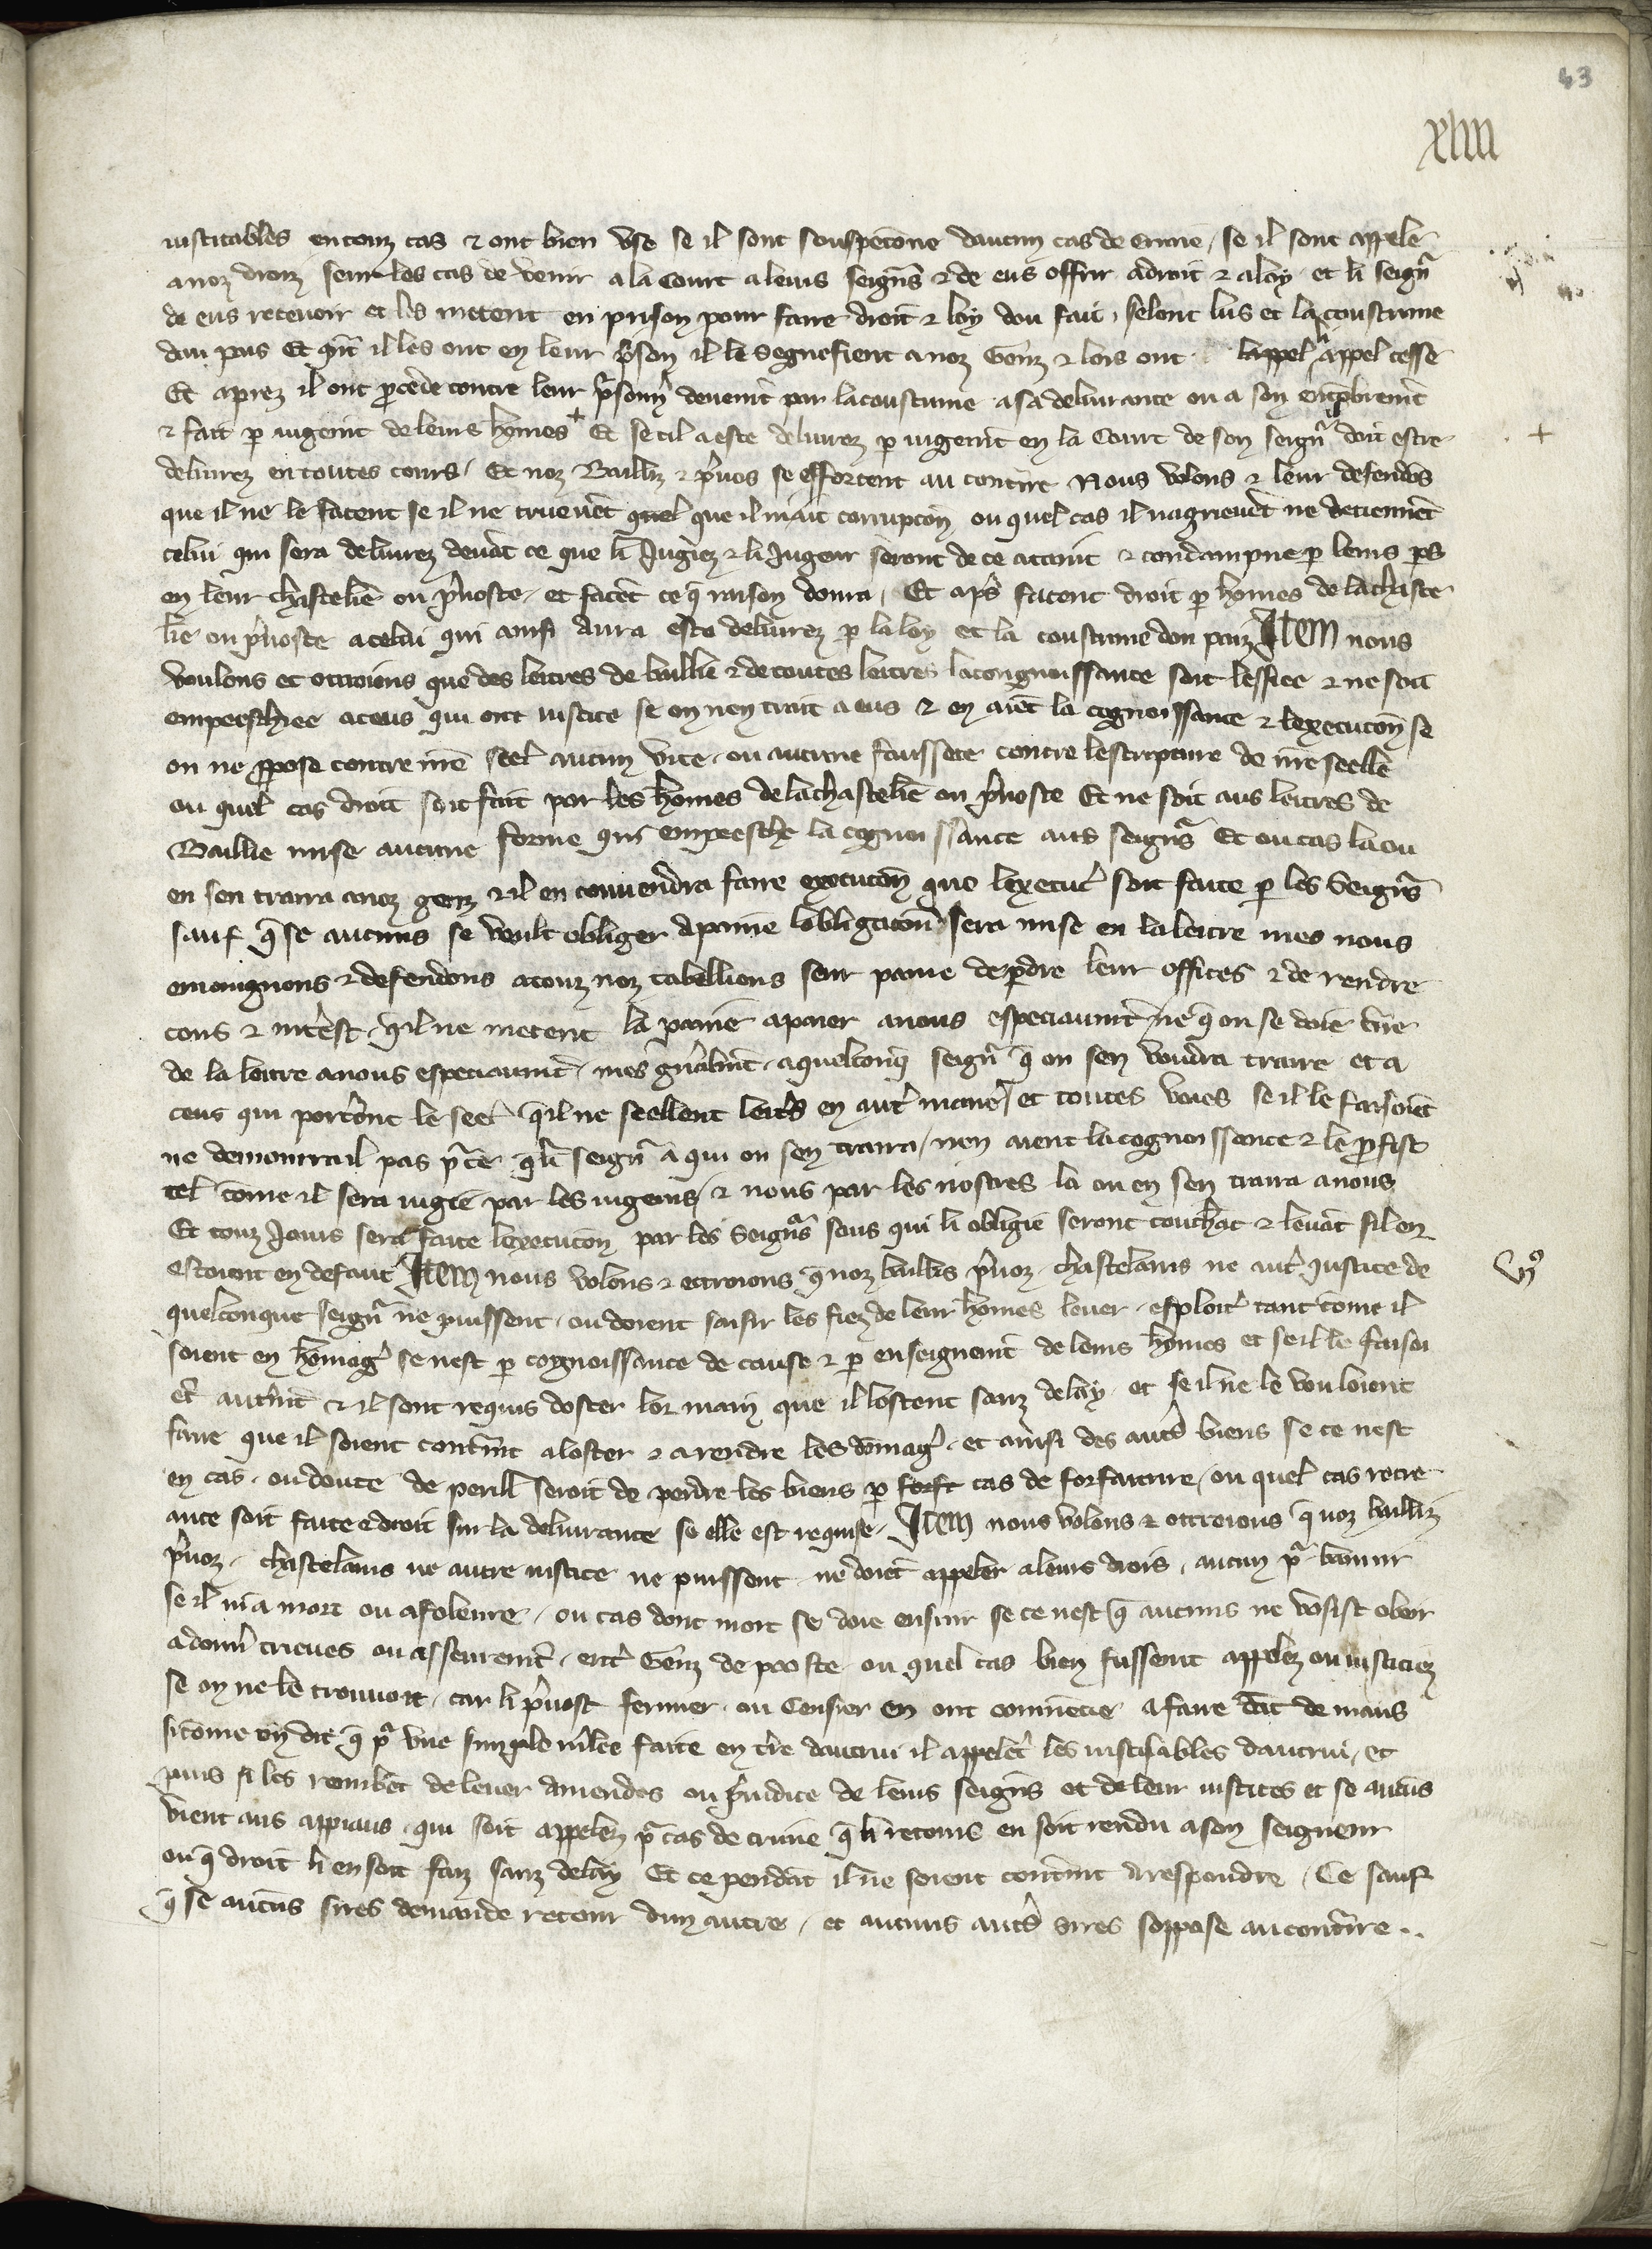 43
xliiii
iusticables en touz cas & ont bien use se il sont souspeconne daucun cas de crime / se il sont appele
a noz droiz seur les cas de venir a la Court a leurs seigns & de eus offrir a droit & a loy et li seign
de eus recevoir et les metent en prison pour faire droit & loy dou fait selont lus et la coustume
dou pais Et qnt il les ont en leur pson il le segnefient a noz Genz & lors ont lappel appel cesse
Et aprez il ont pcede contre leur psonn devenit par la coustume a sa delivrance ou a son
& fait p iugemt de leurs homes + Et se cil a este delivrez p iugemt en la Court de son seign doit estre
delivrez en toutes cours / Et noz Bailliz & pvos se efforcent au contire Nous volons & leur defendons
que il ne le facent se il ne truevet quel que il mait corrupcon ou quel cas il nagrievet ne detiennet
celui qui sera delivrez devat ce que li Jugiez & li Jugeur seront de ce attaint & condampne p leurs ps
en leur chastelie ou pvoste / et facet ce q raison donra / Et aps facent droit p homes de la chaste
lie ou pvoste a celui qui ainsi Aura este delivrez p la loy et la coustume dou paiz Item nous
voulons et ottroions que des lettres de baillie & de toutes lettres la congnoissance soit lessiee & ne soit
empeeschiee a ceus qui ont iustice se on nen trait a eus & en aiet la cognoissance & lexecucon se
on ne ppose contre nre seel aucun vice / ou aucune faussete contre lescripture de nre seelle
ou quel cas droit soit fait par les homes de la chastelie ou pvoste Et ne soit aus lettres de
Baillie mise aucune forme qui empeesche la cognoissance aus seigns Et ou cas la ou
en sen traira a noz genz & il en convendra faire execucon que lexecuc soit faite p les seigns
sauf q se aucuns se veult obliger a paine lobligacon sera mise en la lettre mes nous
enioignons & defendons a touz noz tabellions seur paine de pdre leur offices & de rendre
cous & interest / qil ne metent la paine a paier a nous especiaumt ne q on se doie trre
de la lettre a nous especiaumt / mes gnalmt / a quelconq seign q on sen voudra traire et a
ceus qui portont le seel qil ne seellent lettrs en autr manre / et toutes voies se il le faisoiet
ne demourra il pas p ce q li seign a qui on sen traira / nen aient la cognoissance & le pfist
tel come il sera iugie par les iugeurs / & nous par les nostres la ou en sen traira a nous
Et touz Jours sera faite lexecucon par les Seigns sous qui li obligie seront couchat & levat sil en
estoient en defaut Item nous volons & ottroions q noz baillis / pvoz / chastelains ne autr Justice de
quelconque seign ne puissent / ou doient saisir les fiez de leur homes lever / esploitr tant come il
soient en homag se nest p cognoissance de cause & p enseignemt de leurs homes et se il le faisoi
et autrmt & il sont requis doster lor main que il lostent sanz delay / et se il ne le vouloient
faire que il soient contrint a loster & a rendre les domag / et ainsi des autrs biens se ce nest
en cas / ou doute de perill seroit de perdre les biens p forft cas de forfaiture / ou quel cas recre
ance soit faite & droit sur la delivrance se elle est requise / Item nous volons & ottroions q noz bailliz
pvoz / chastelains ne autre iustice ne puissent ne doiet appeler a leurs drois / aucun pr bannir
se il ni a mort ou afoleure / ou cas dont mort se doie ensuir se ce nest q aucuns ne vosist obeir
a donnr trieues ou asseuremt / entr Genz de pooste ou quel cas bien fussent appelez ou iusticiez
se on ne le trouvoit / car li pvost fermier / ou Censier en ont commencie a faire dat de maus
si come on dit q pr une simple mlee faite en tre dautrui il appelet les iusticables dautrui / et
puis si les raimbet de lever amendes ou pjudice de leurs seigns et de leur iustices et se aucus
vient aus appiaus / qui soit appelez pr cas de crime q li retours en soit rendu a son seigneur
ou q droit li en soit faiz sanz delay Et ce pendat il ne soient contrint a respondre / Ce sauf
q se aucuns sires demande retour dun autre / et aucuns autrs sires soppose au contrire ..